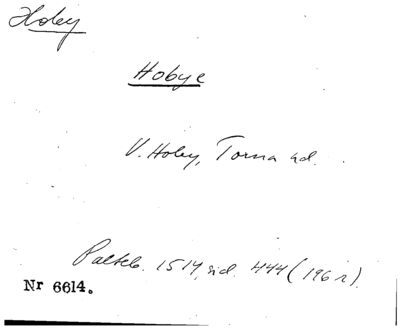 Hoby
Hobye
V. Hoby, Torna hd.
Palteb. 1514, sid. 444 (196 r).
Nr 6614.